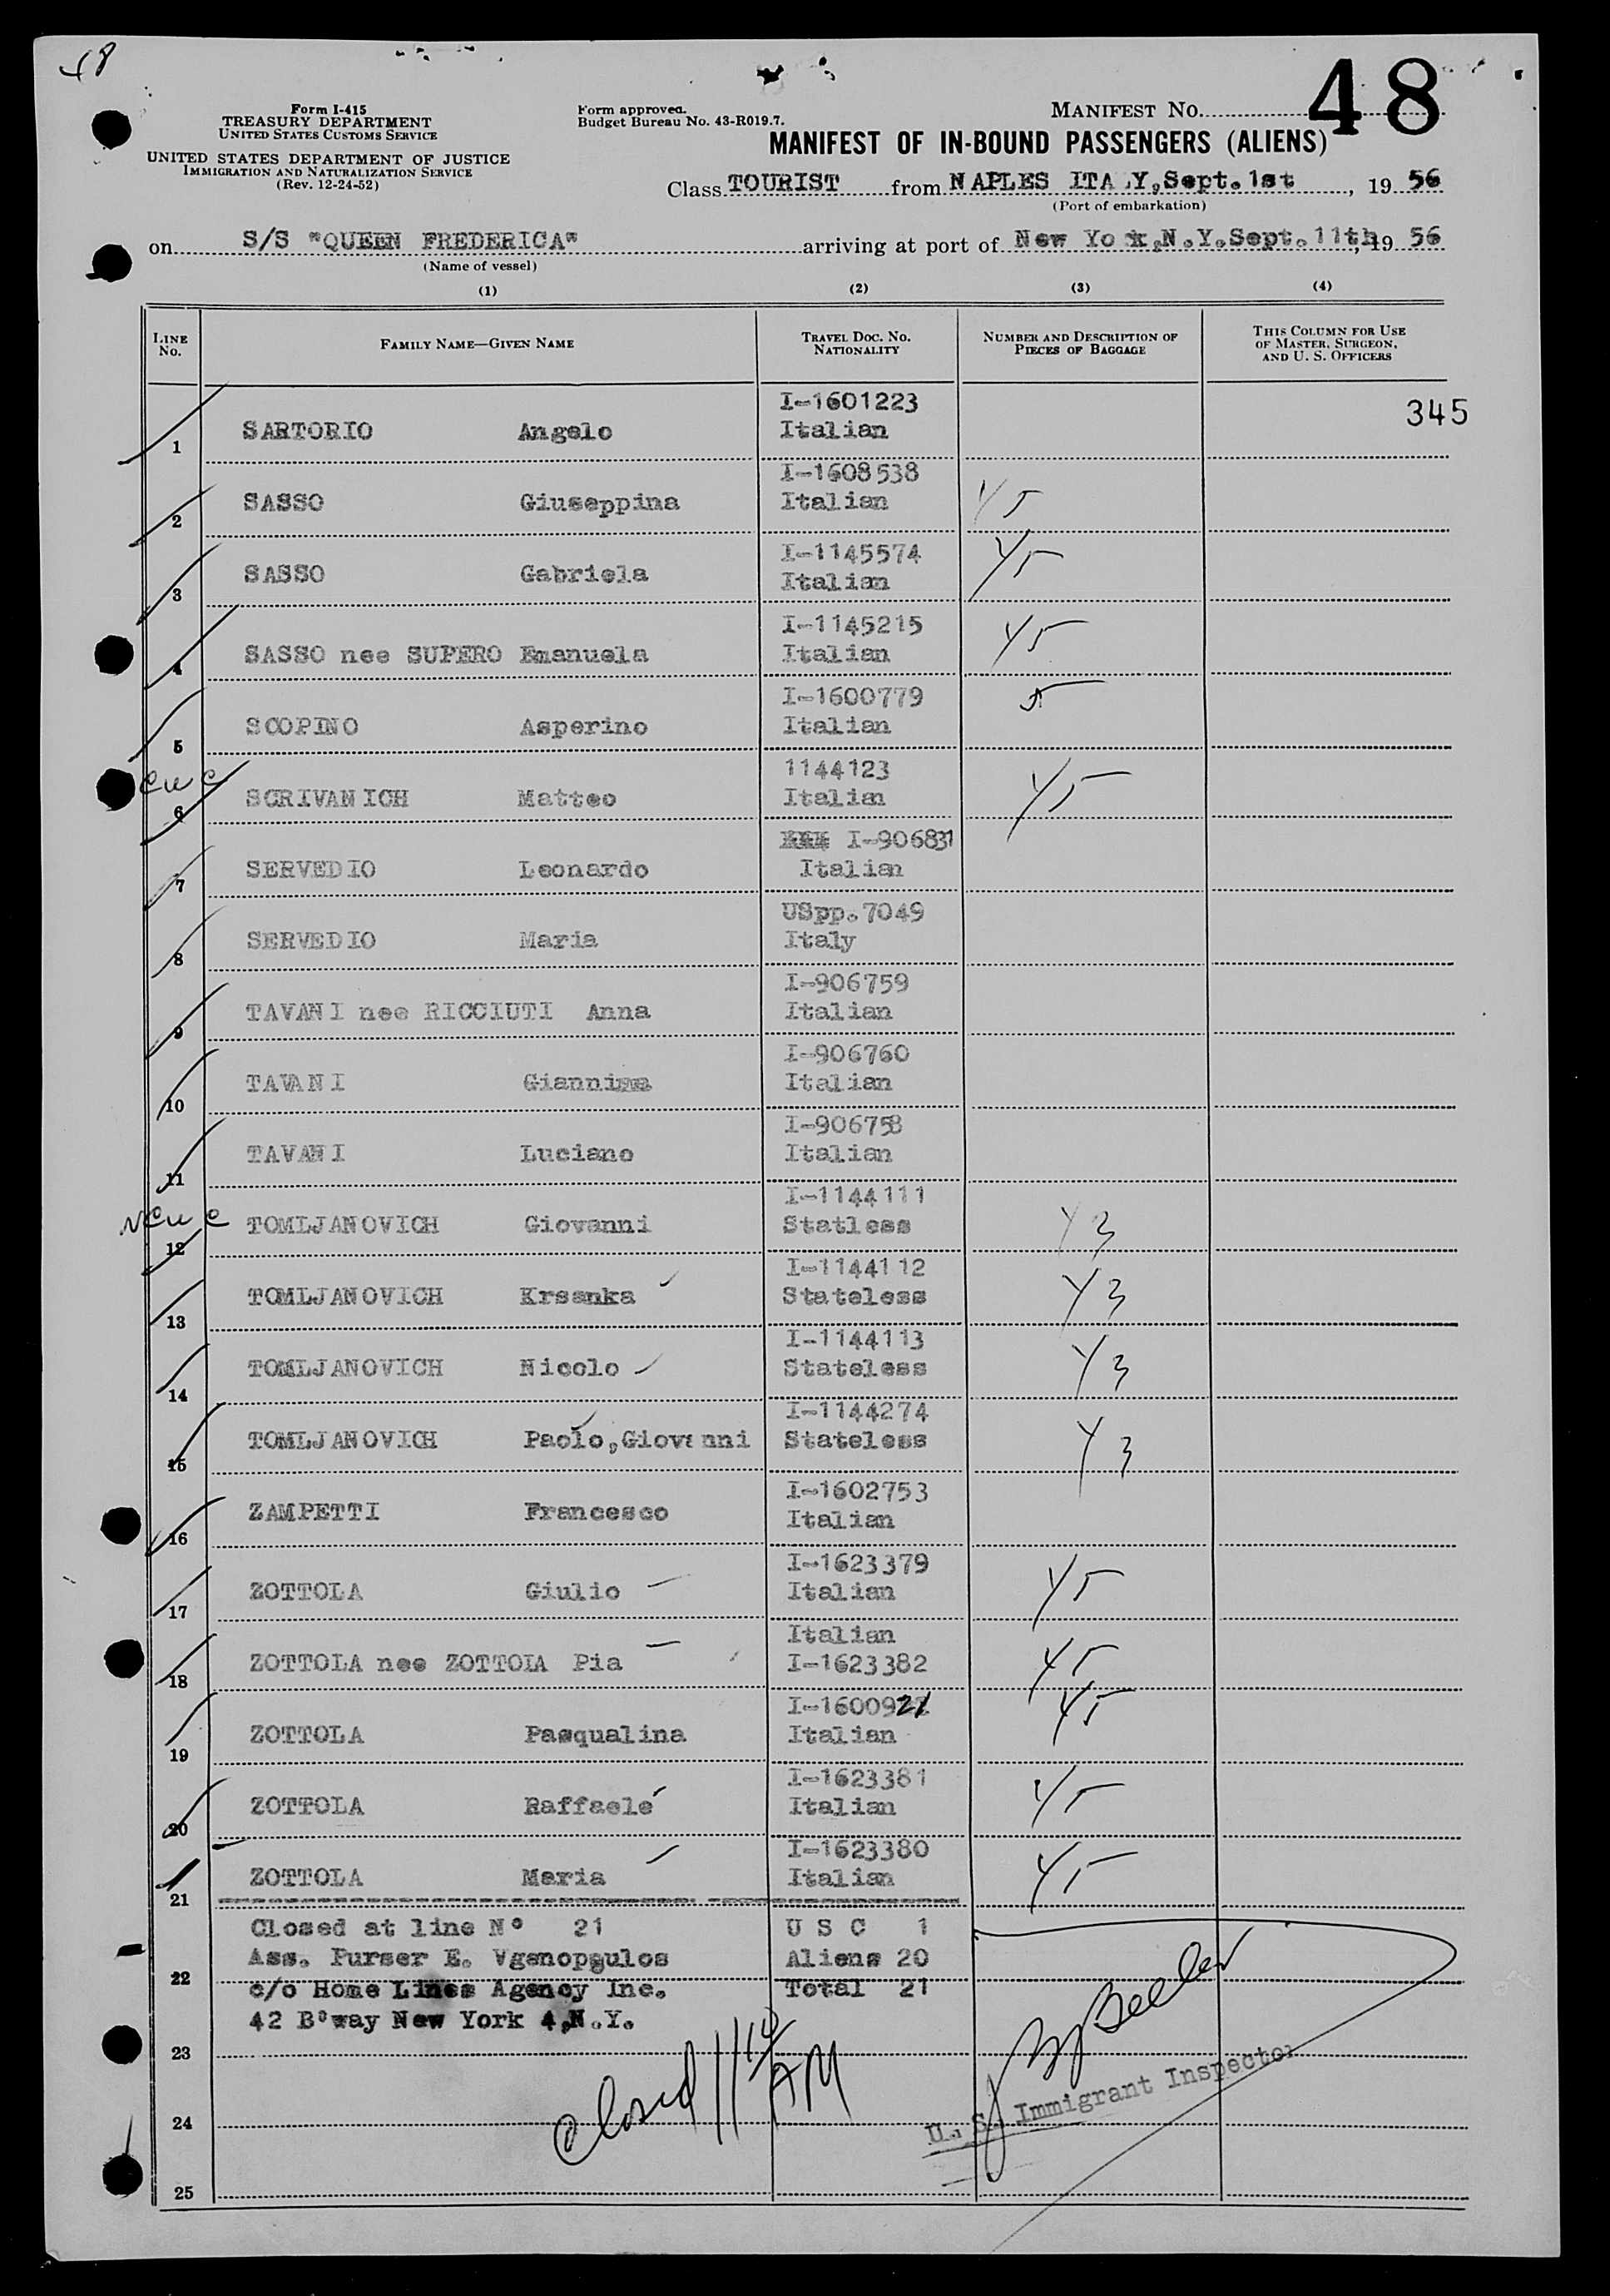 48
Form I-415
TREASURY DEPARTMENT
UNITED STATES CUSTOMS SERVICE
UNITED STATES DEPARTMENT OF JUSTICE
IMMIGRATION AND NATURALIZATION SERVICE
(Rev. 12-24-52)
Form approved.
Budget Bureau No. 43-R019.7.
MANIFEST NO. 48
MANIFEST OF IN-BOUND PASSENGERS (ALIENS)
Class TOURIST from NAPLES ITA Y,Sept.1st, 19 56
(Port of embarkation)
on S/S "QUEEN FREDERICA" arriving at port of New Yo k,N.Y.Sept.11th, 19 56
(Name of vessel)
(1) (2) (3) (4)
LINE NO. FAMILY NAME—GIVEN NAME TRAVEL DOC. NO. NATIONALITY NUMBER AND DESCRIPTION OF PIECES OF BAGGAGE THIS COLUMN FOR USE OF MASTER, SURGEON, AND U. S. OFFICERS
I-1601223 345
1 SARTORIO Angelo Italian
I-1608538
2 SASSO Giuseppina Italian Y5
I-1145574
3 SASSO Gabriela Italian Y5
I-1145215
4 SASSO nee SUPERO Emanuela Italian Y5
I-1600779
5 SCOPINO Asperino Italian 5
1144123
6 SCRIVANICH Matteo Italian Y5
I-906831
7 SERVEDIO Leonardo Italian
USpp.7049
8 SERVEDIO Maria Italy
I-906759
9 TAVANI nee RICCIUTI Anna Italian
I-906760
10 TAVANI Giannina Italian
I-906758
11 TAVANI Luciano Italian
I-1144111
12 TOMLJANOVICH Giovanni Statless Y3
I-1144112
13 TOMLJANOVICH Krsanka Stateless Y3
I-1144113
14 TOMLJANOVICH Nicolo Stateless Y3
I-1144274
15 TOMLJANOVICH Paolo,Giovanni Stateless Y3
I-1602753
16 ZAMPETTI Francesco Italian
I-1623379
17 ZOTTOLA Giulio Italian Y5
Italian
18 ZOTTOLA nee ZOTTOLA Pia I-1623382 Y5
I-1600921
19 ZOTTOLA Pasqualina Italian Y5
I-1623381
20 ZOTTOLA Raffaele Italian Y5
I-1623380
21 ZOTTOLA Maria Italian Y5
Closed at line N° 21 U S C 1
Ass. Purser E. Vganopoulos Aliens 20
22 c/o Home Lines Agency Inc. Total 21
42 B°way New York 4,N.Y.
23
Closed 11 10 AM
U. S. Immigrant Inspector
24
25